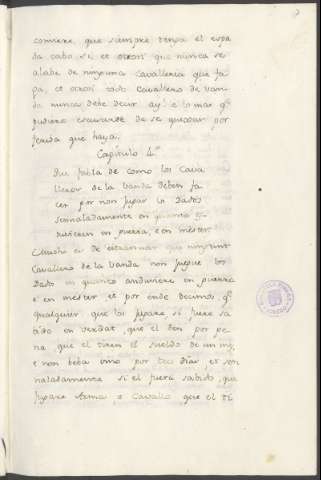 conviene que siempre tenga el espa
da cabo si, et otrosi que nunca se
alabe de ninguna Cavalleria que fa
ga, et otrosi todo Cavallero de van
da nunca debe decir ay! e lo mas qe
pudiere escusarse de se quexar por
ferida que haya.
Capitulo 4º
Que fabla de como los Cava
lleros de la Vanda deben fa
cer por non jugar los Dados
sennaladamente en quanto an
duvieren en guerra, e en mester
Mucho es de estrannar que ningunt
Cavallero de la Vanda non juegue los
Dados en quanto anduviere en guerra
e en mester et por ende decimos qe
qualquier que los jugare si fuere sa
bido en verdat, que el den por pe
na, que el tiren el sueldo de un mes,
e non beba vino por tres dias, et sen
naladamente si el fuere sabido, que
jugare Arma o Cavallo que el ti